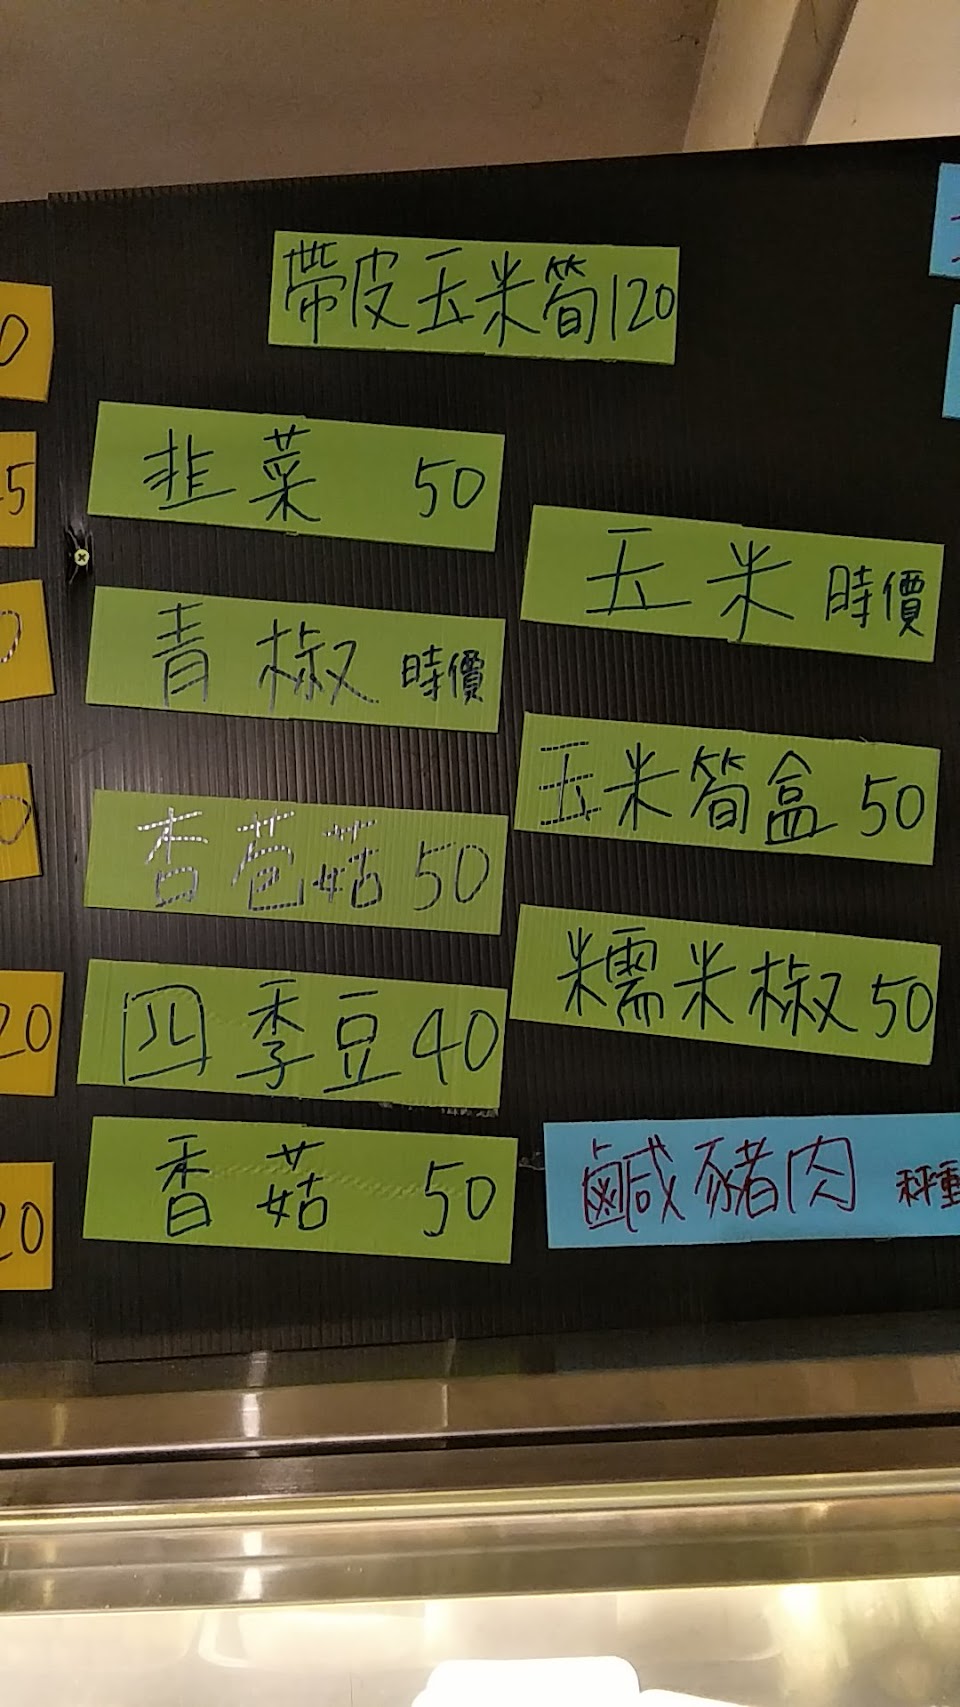 帶皮玉米筍120
韭菜 50
青椒 時價
杏苞菇50
四季豆40
香菇 50
玉米 時價
玉米筍盒 50
糯米椒50
鹹豬肉 秤重
0
20
20